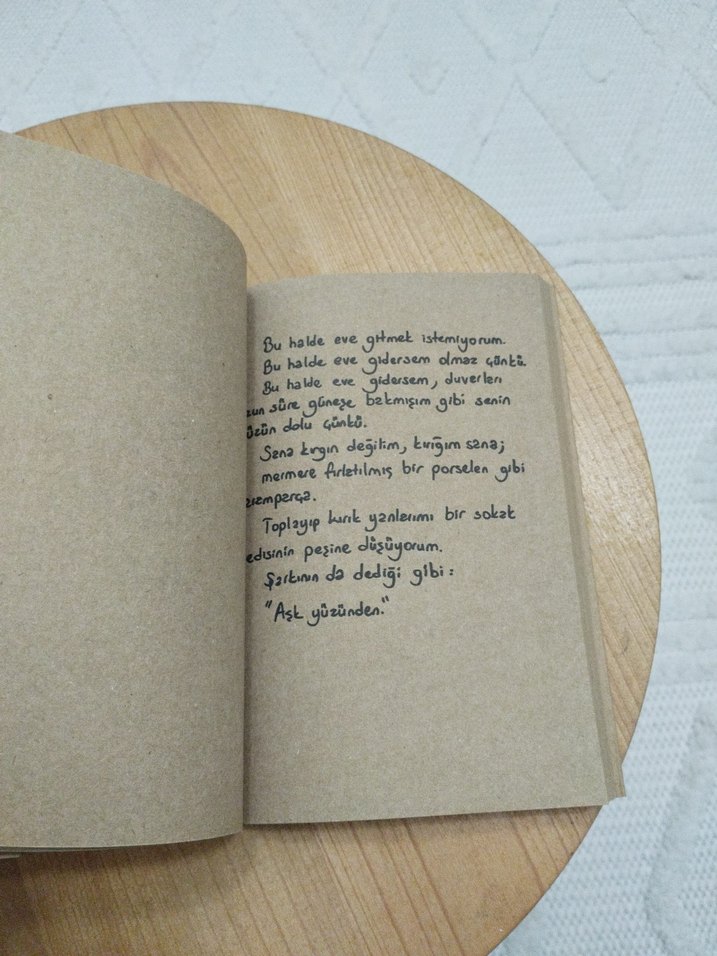 Bu halde eve gitmek istemiyorum.
Bu halde eve gidersem olmaz çünkü.
Bu halde eve gidersem, duvarları
zun süre güneşe bakmışım gibi senin
üzün dolu çünkü.
Sana kırgın değilim, kırığım sana;
mermere fırlatılmış bir porselen gibi
aramparça.
Toplayıp kırık yanlarımı bir sokak
edisinin peşine düşüyorum.
Şarkının da dediği gibi:
"Aşk yüzünden."